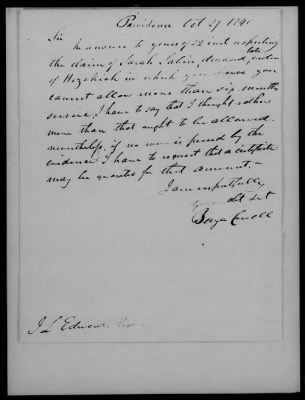 Providence Oct 29 1840
Sir
In answer to yours of 22 inst respecting
the claim of Sarah Sabin, deceased, late widow
of Hezekiah in which you you
cannot allow more than six months
service, I have to say that I thought
more than that ought to be allowed.
nevertheless, if no more is proved by the
evidence I have to request that a certificate
may be granted for that amount.—
I am respectfully
your obt sert
J L Edwards Esq